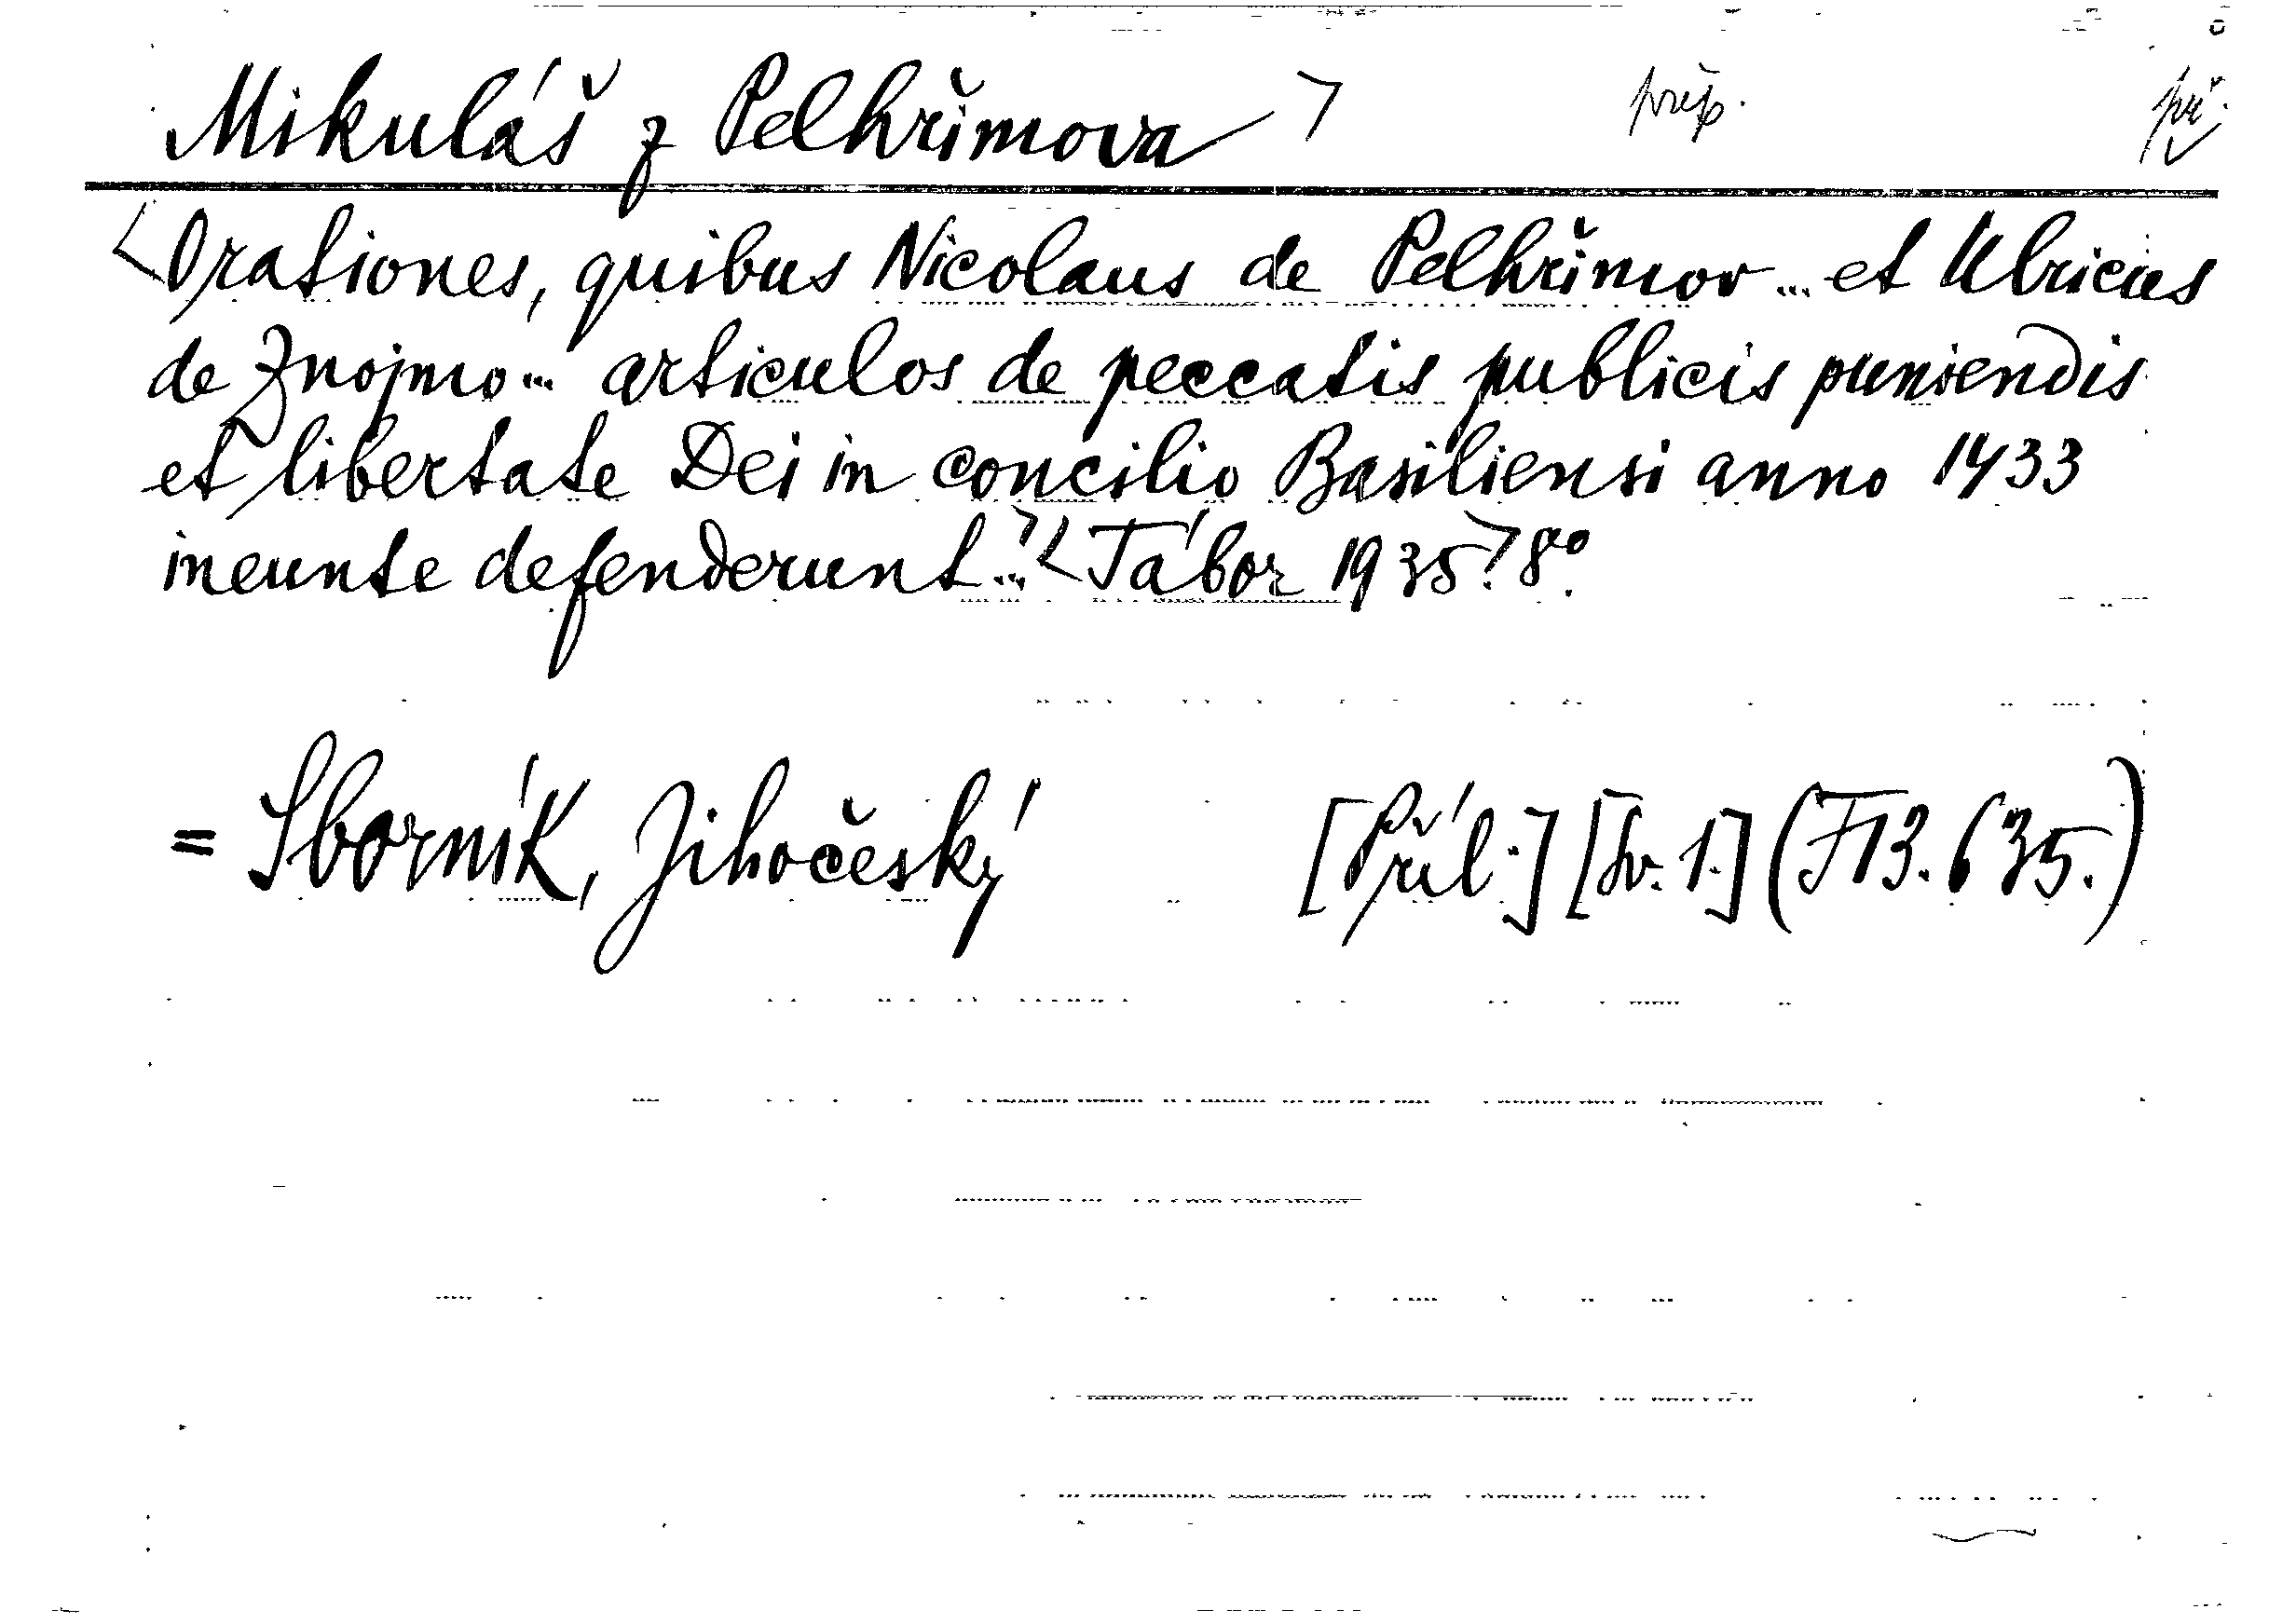 Mikuláš z Pelhřimova > přep. př.
<Orationes, quibus Nicolaus de Pelhřimov ... et Ulricus
de Znojmo ... articulos de peccatis publicis puniendis
et libertate Dei in concilio Basiliensi anno 1433
ineunte defenderunt...> <Tábor 1935>. 8°.
= Sborník, Jihočeský [Příl.] [Sv. 1.] (F 13.635.)